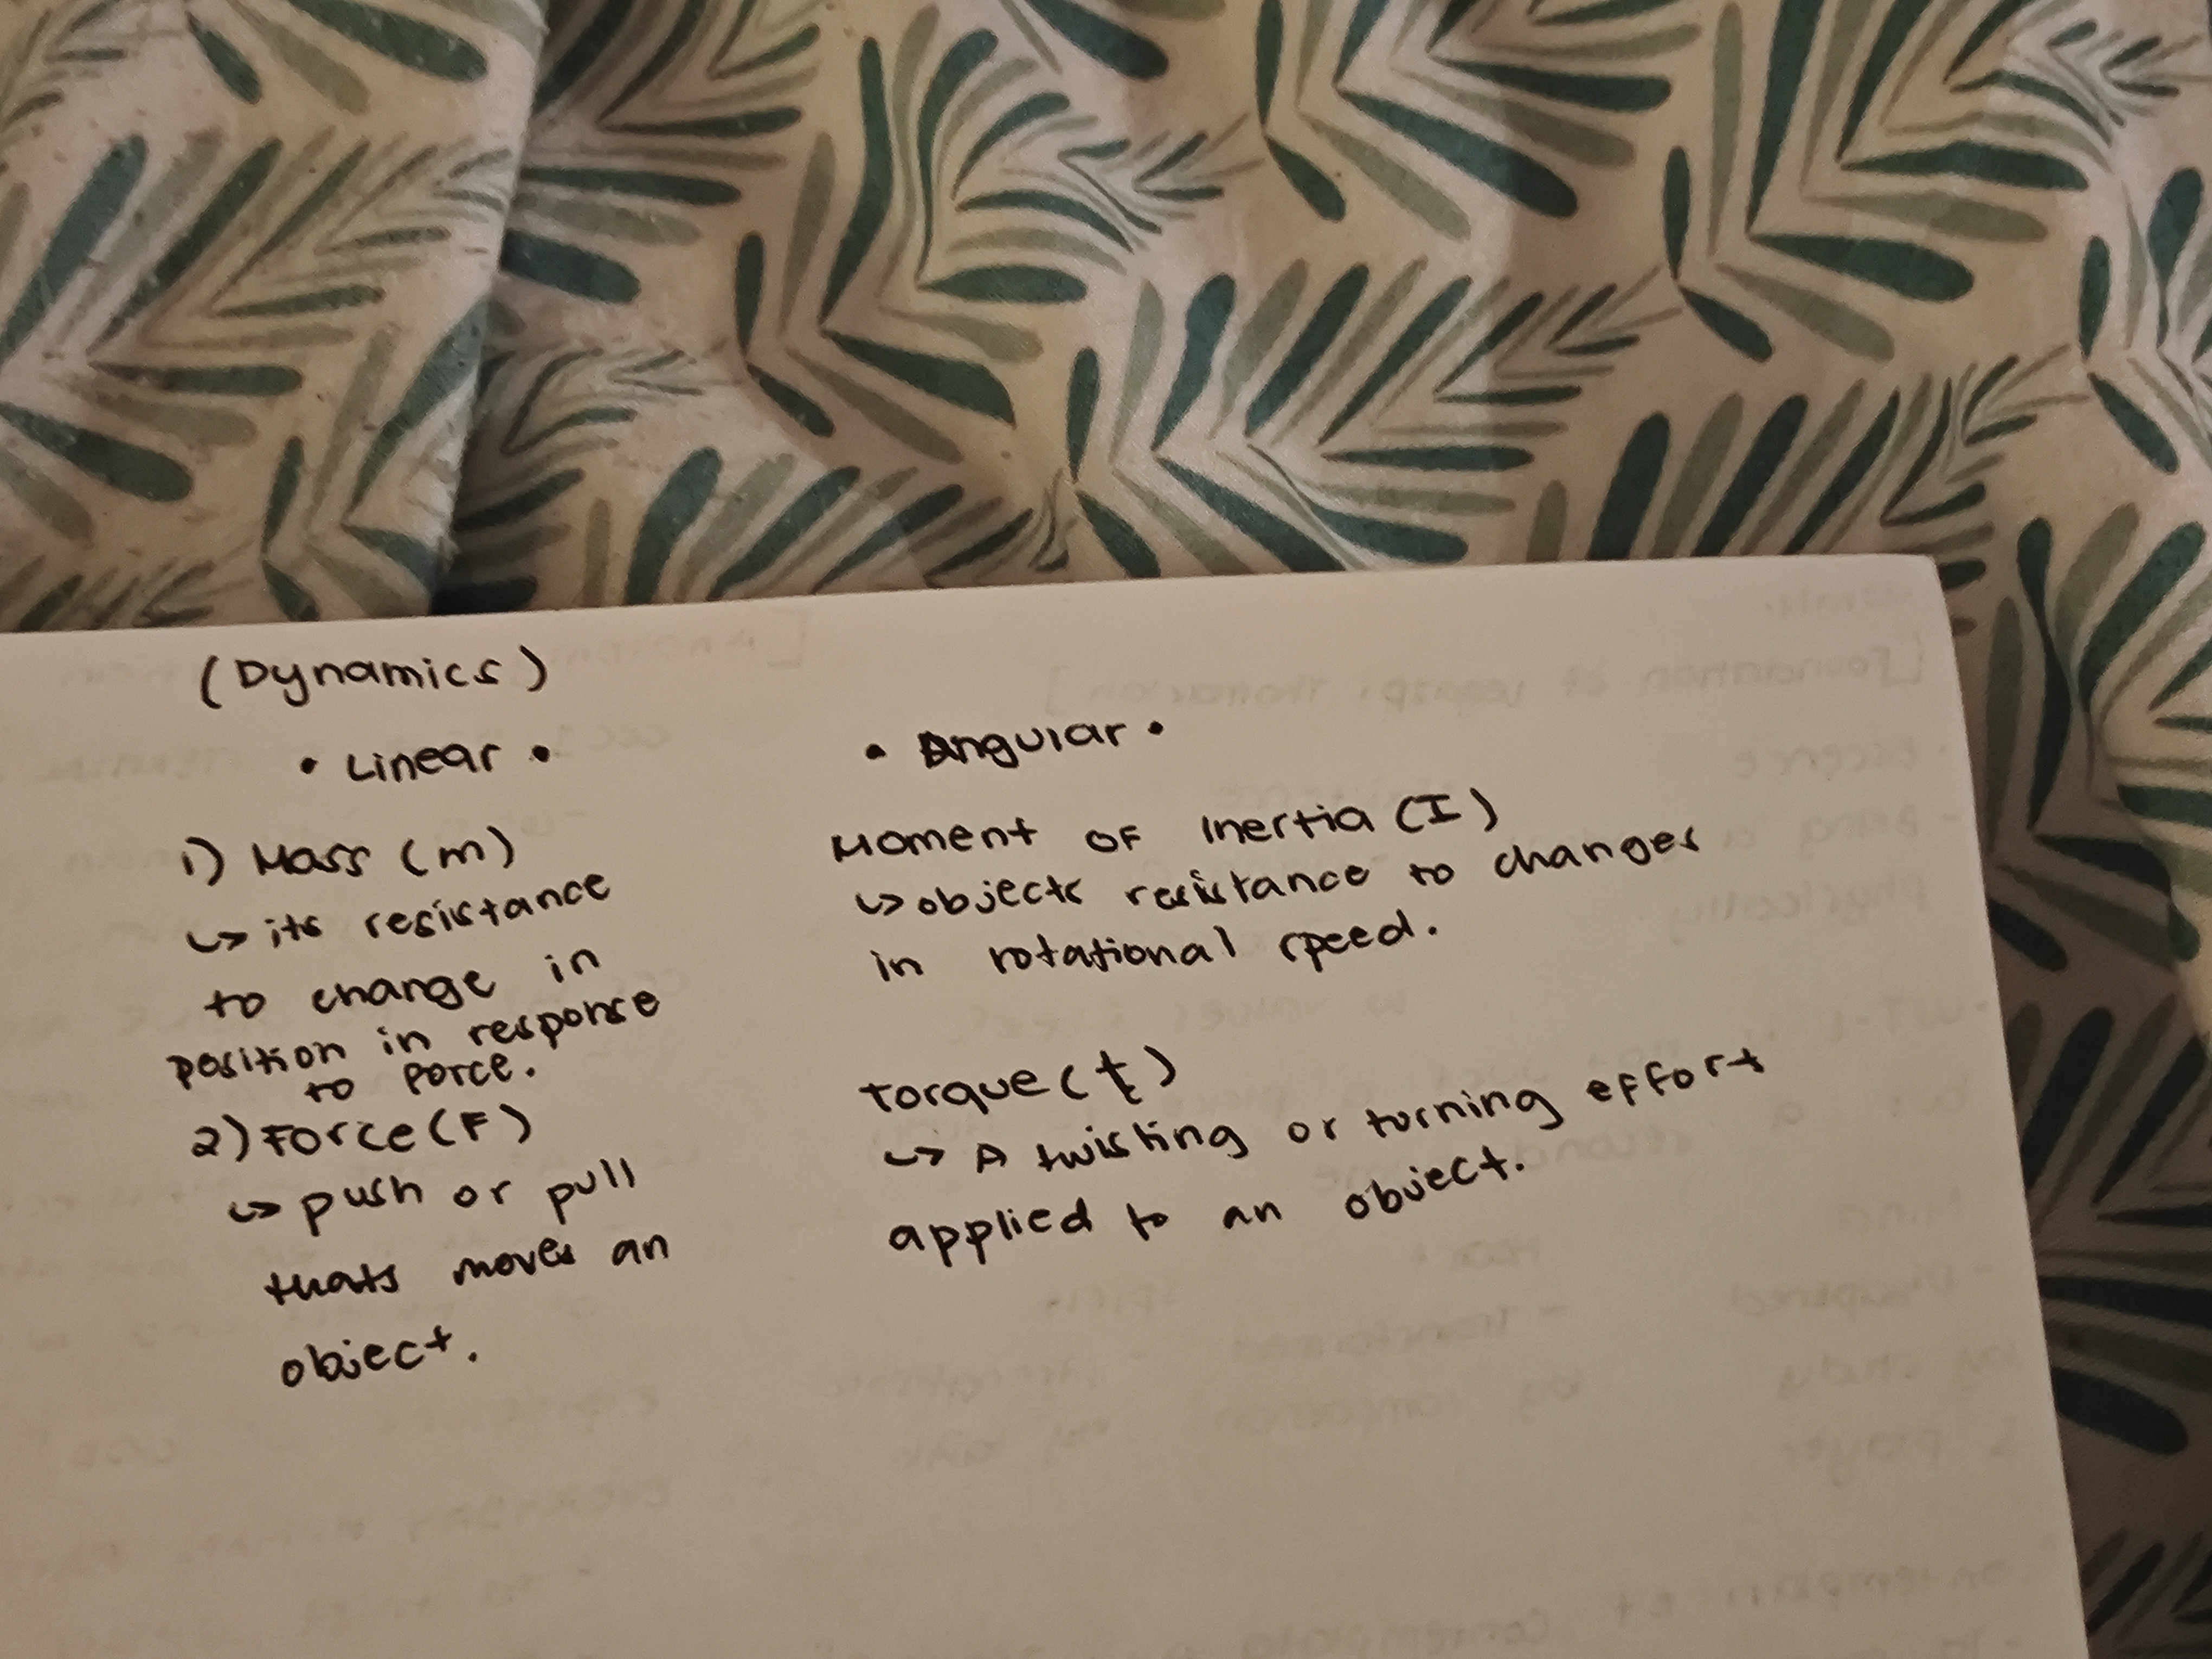 (Dynamics)
• Linear •
1) Mass (m)
↳ its resistance
to change in
position in response
to porce.
2) Force (F)
↳ push or pull
thats moves an
object.
• Angular •
Moment of Inertia (I)
↳ objects resistance to changes
in rotational speed.
Torque (t)
↳ A twisting or turning effort
applied to an object.
[Foundation of Legazpi Thomasian]
physically
by study
prayer